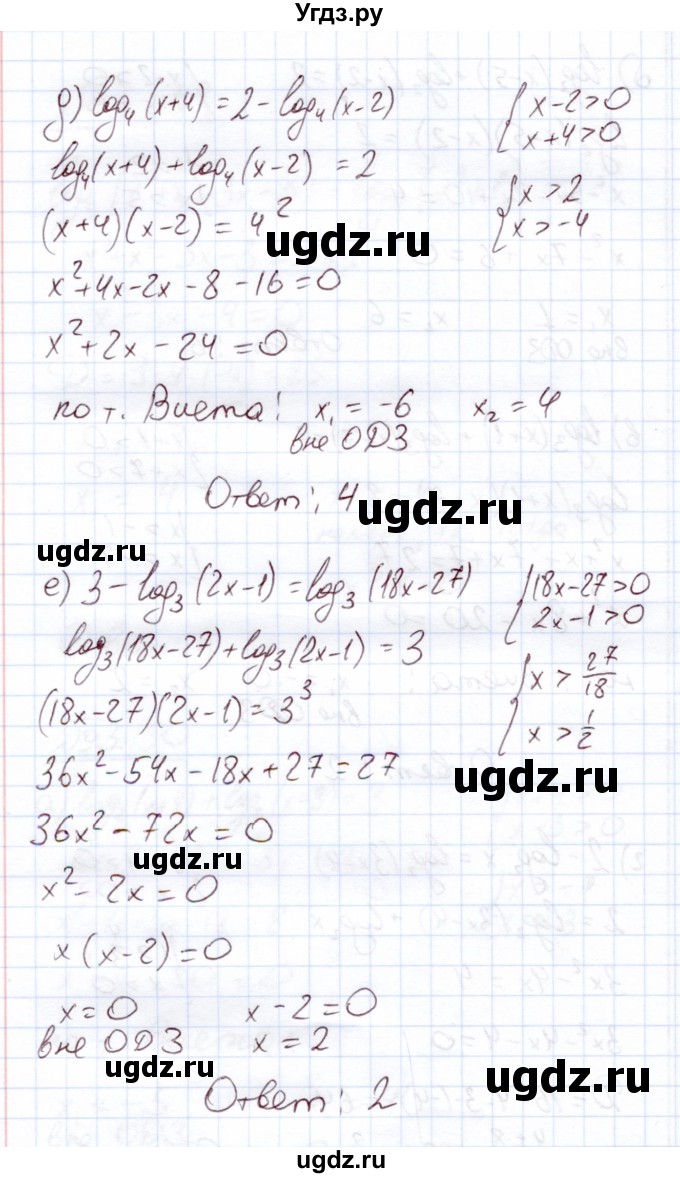 Угдз.ру
д) log₄(x+4) = 2 - log₄(x-2) { x-2>0
x+4>0
log₄(x+4) + log₄(x-2) = 2
(x+4)(x-2) = 4² { x>2
x>-4
ugdz.ru
x²+4x-2x-8-16=0
x²+2x-24=0
по т. Виета: x₁ = -6 x₂ = 4
вне ОДЗ
Ответ: 4
ugdz.ru
ugdz.ru
е) 3-log₃(2x-1) = log₃(18x-27) { 18x-27>0
2x-1>0
log₃(18x-27)+log₃(2x-1) = 3
(18x-27)(2x-1) = 3³ { x > 27/18
x > 1/2
36x²-54x-18x+27=27
ugdz.ru
36x²-72x=0
ugdz.ru
x²-2x=0
x(x-2)=0
x=0 x-2=0
вне ОДЗ x=2
Ответ: 2
ugdz.ru
ugdz.ru